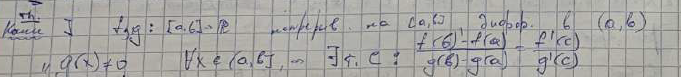 Th.
Коши ] f, g : [a, b] → ℝ непрерыв. на [a, b] дифф. в (a, b)
и g(x) ≠ 0 ∀x ∈ (a, b], → ∃ т. c : \frac{f(b) - f(a)}{g(b) - g(a)} = \frac{f'(c)}{g'(c)}